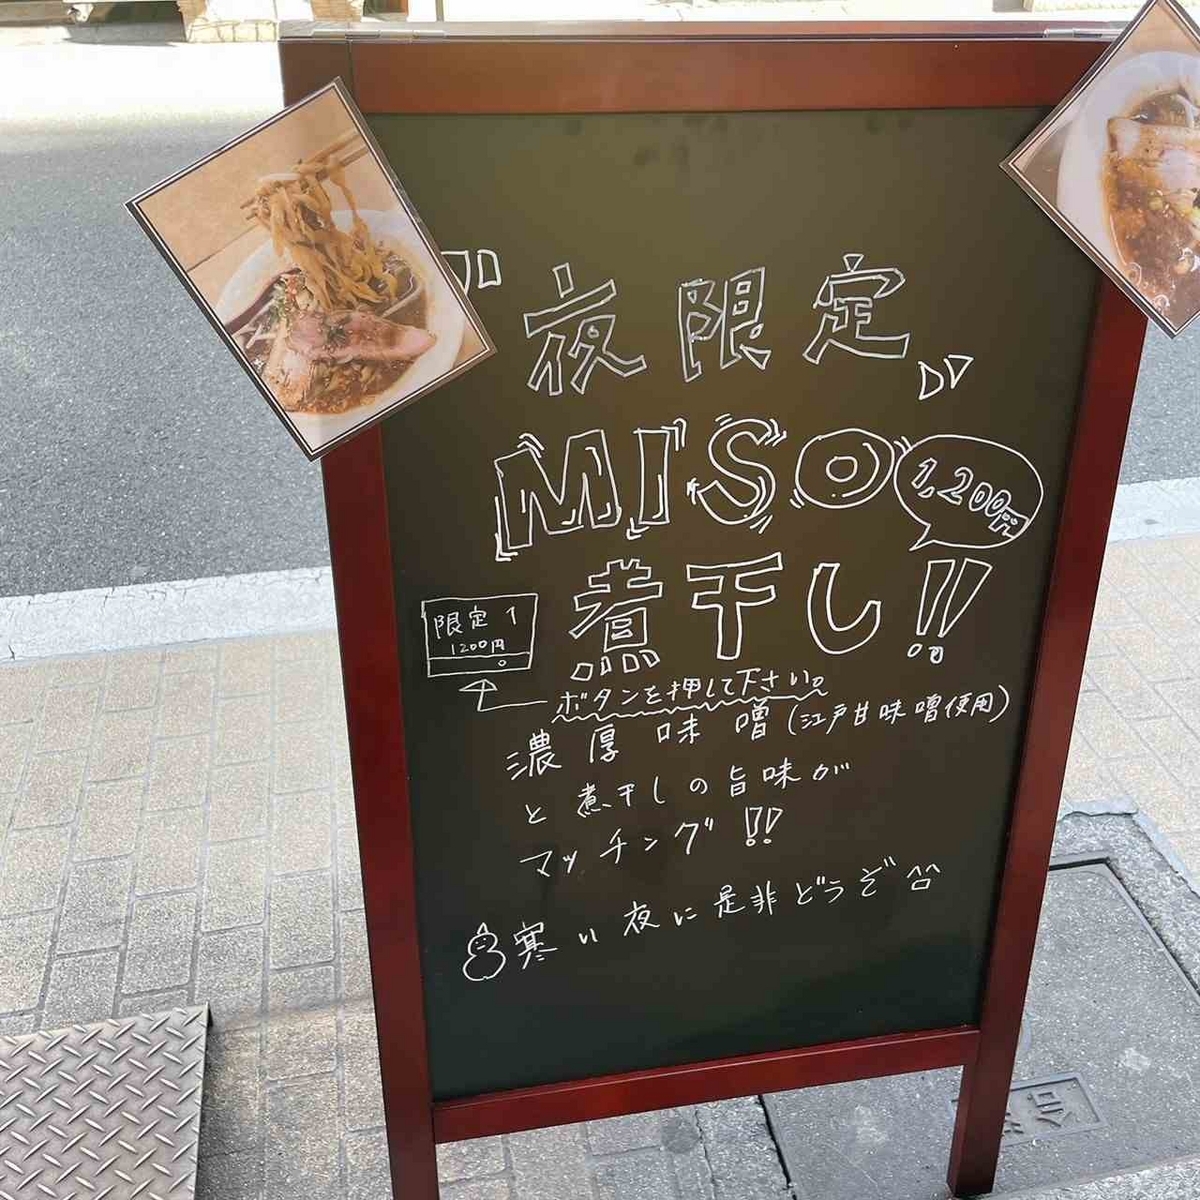 "夜限定"
MISO
1,200円
煮干し!!
限定1
1200円
ボタンを押して下さい。
濃厚味噌(江戸甘味噌使用)
と煮干しの旨味が
マッチング!!
寒い夜に是非どうぞ